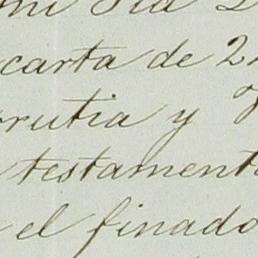 mi Tia
carta de 2
rrutia y
testament
el finado